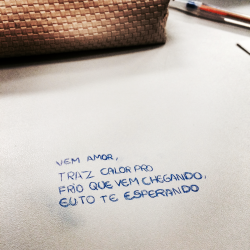 VEM AMOR,
TRAZ CALOR PRO
FRIO QUE VEM CHEGANDO,
EU TO TE ESPERANDO